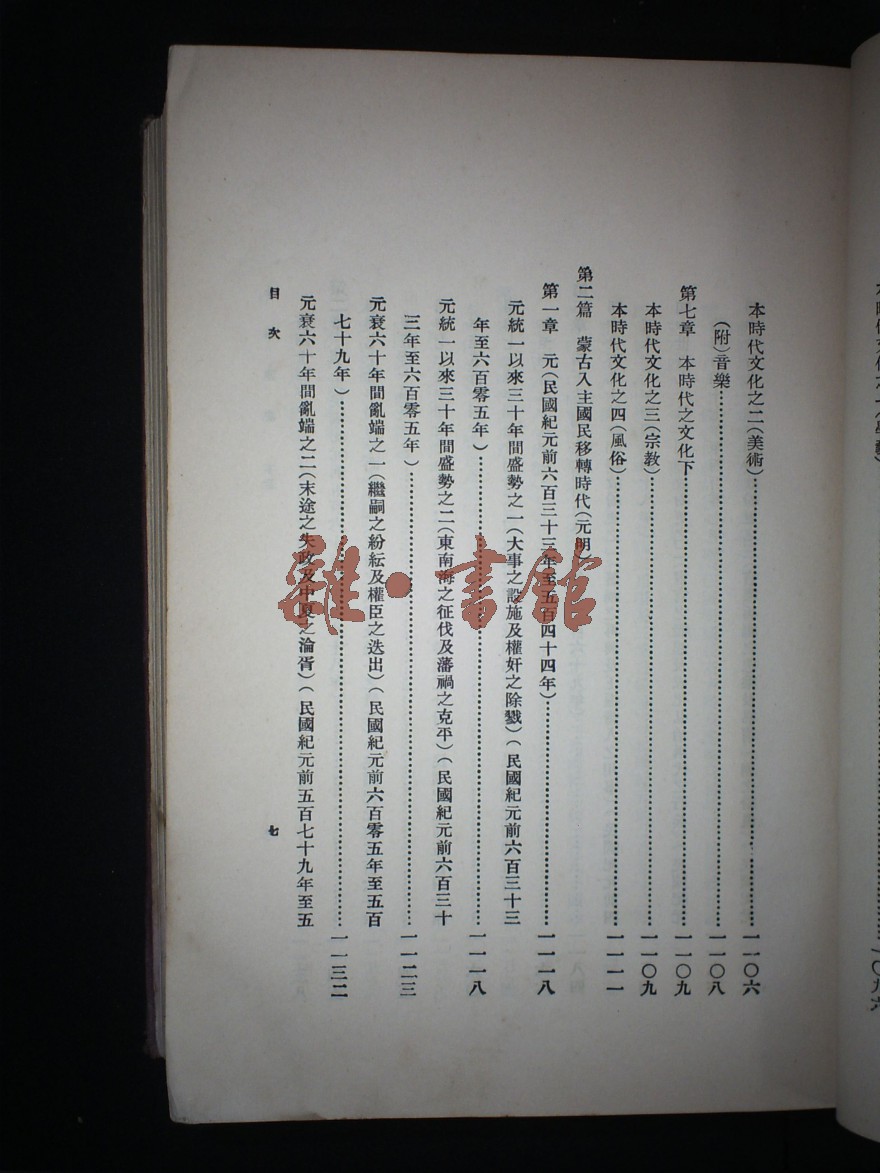 本時代文化之二(美術)……一一〇六
(附)音樂……一一〇八
第七章　本時代之文化下……一一〇九
本時代文化之三(宗教)……一一〇九
本時代文化之四(風俗)……一一一一
第二篇　蒙古入主國民移轉時代(元明)
第一章　元(民國紀元前六百三十三年至五百四十四年)……一一一八
元統一以來三十年間盛勢之一(大事之設施及權奸之除戮)(民國紀元前六百三十三
年至六百零五年)……一一一八
元統一以來三十年間盛勢之二(東南海之征伐及藩禍之克平)(民國紀元前六百三十
三年至六百零五年)……一一二三
元衰六十年間亂端之一(繼嗣之紛紜及權臣之迭出)(民國紀元前六百零五年至五百
七十九年)……一一三二
元衰六十年間亂端之二(末途之失政及中夏之淪胥)(民國紀元前五百七十九年至五
目次
七
雜·書館